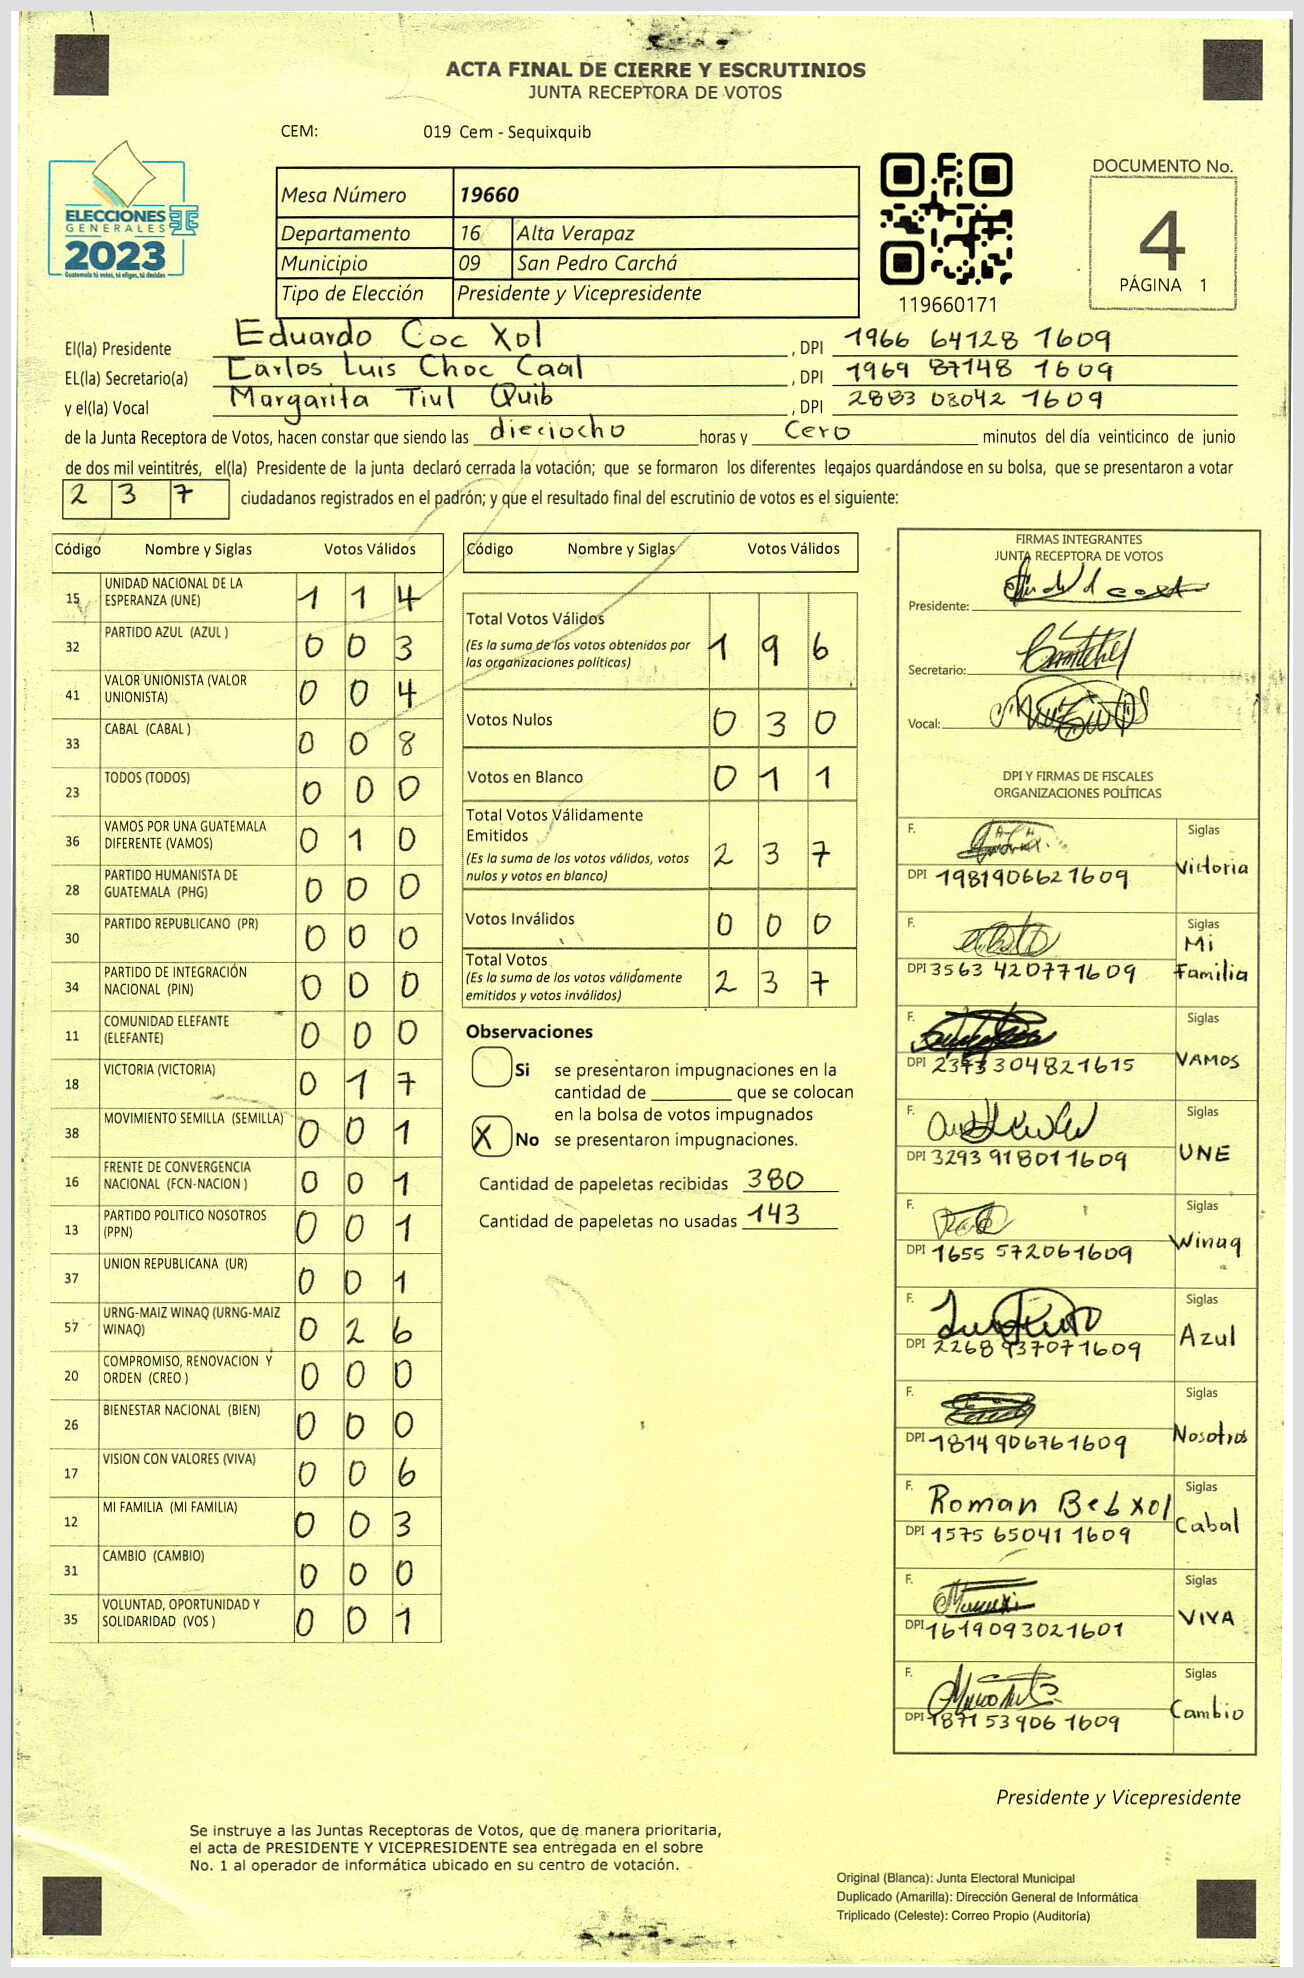 ACTA FINAL DE CIERRE Y ESCRUTINIOS
JUNTA RECEPTORA DE VOTOS
CEM: 019 Cem - Sequixquib
ELECCIONES
GENERALES
2023
Guatemala tú votas, tú eliges, tú decides
Mesa Número 19660
Departamento 16 Alta Verapaz
Municipio 09 San Pedro Carchá
Tipo de Elección Presidente y Vicepresidente
119660171
DOCUMENTO No.
4
PÁGINA 1
El(la) Presidente Eduardo Coc Xol , DPI 1966 64128 1609
EL(la) Secretario(a) Carlos Luis Choc Caal , DPI 1969 87148 1609
y el(la) Vocal Margarita Tiul Quib , DPI 2883 08042 1609
de la Junta Receptora de Votos, hacen constar que siendo las dieciocho horas y cero minutos del día veinticinco de junio
de dos mil veintitrés, el(la) Presidente de la junta declaró cerrada la votación; que se formaron los diferentes legajos guardándose en su bolsa, que se presentaron a votar
2 3 7 ciudadanos registrados en el padrón; y que el resultado final del escrutinio de votos es el siguiente:
Código Nombre y Siglas Votos Válidos
15 UNIDAD NACIONAL DE LA ESPERANZA (UNE) 1 1 4
32 PARTIDO AZUL (AZUL ) 0 0 3
41 VALOR UNIONISTA (VALOR UNIONISTA) 0 0 4
33 CABAL (CABAL ) 0 0 8
23 TODOS (TODOS) 0 0 0
36 VAMOS POR UNA GUATEMALA DIFERENTE (VAMOS) 0 1 0
28 PARTIDO HUMANISTA DE GUATEMALA (PHG) 0 0 0
30 PARTIDO REPUBLICANO (PR) 0 0 0
34 PARTIDO DE INTEGRACIÓN NACIONAL (PIN) 0 0 0
11 COMUNIDAD ELEFANTE (ELEFANTE) 0 0 0
18 VICTORIA (VICTORIA) 0 1 7
38 MOVIMIENTO SEMILLA (SEMILLA) 0 0 1
16 FRENTE DE CONVERGENCIA NACIONAL (FCN-NACION ) 0 0 1
13 PARTIDO POLITICO NOSOTROS (PPN) 0 0 1
37 UNION REPUBLICANA (UR) 0 0 1
57 URNG-MAIZ WINAQ (URNG-MAIZ WINAQ) 0 2 6
20 COMPROMISO, RENOVACION Y ORDEN (CREO ) 0 0 0
26 BIENESTAR NACIONAL (BIEN) 0 0 0
17 VISION CON VALORES (VIVA) 0 0 6
12 MI FAMILIA (MI FAMILIA) 0 0 3
31 CAMBIO (CAMBIO) 0 0 0
35 VOLUNTAD, OPORTUNIDAD Y SOLIDARIDAD (VOS ) 0 0 1
Código Nombre y Siglas Votos Válidos
Total Votos Válidos 1 9 6
(Es la suma de los votos obtenidos por
las organizaciones políticas)
Votos Nulos 0 3 0
Votos en Blanco 0 1 1
Total Votos Válidamente
Emitidos 2 3 7
(Es la suma de los votos válidos, votos
nulos y votos en blanco)
Votos Inválidos 0 0 0
Total Votos 2 3 7
(Es la suma de los votos válidamente
emitidos y votos inválidos)
Observaciones
Si se presentaron impugnaciones en la
cantidad de ________ que se colocan
en la bolsa de votos impugnados
X No se presentaron impugnaciones.
Cantidad de papeletas recibidas 380
Cantidad de papeletas no usadas 143
FIRMAS INTEGRANTES
JUNTA RECEPTORA DE VOTOS
Presidente:
Secretario:
Vocal:
DPI Y FIRMAS DE FISCALES
ORGANIZACIONES POLÍTICAS
F. Siglas
DPI 1981906621609 Victoria
F. Siglas
DPI 3563 420771609 Mi Familia
F. Siglas
DPI 2373304821615 VAMOS
F. Siglas
DPI 3293 918011609 UNE
F. Siglas
DPI 1655 572061609 Winaq
F. Siglas
DPI 2268937071609 Azul
F. Siglas
DPI 1814906761609 Nosotros
F. Roman Beb xol Siglas
DPI 1575 65041 1609 Cabal
F. Siglas
DPI 1619093021601 VIVA
F. Siglas
DPI 1871 53906 1609 Cambio
Presidente y Vicepresidente
Se instruye a las Juntas Receptoras de Votos, que de manera prioritaria,
el acta de PRESIDENTE Y VICEPRESIDENTE sea entregada en el sobre
No. 1 al operador de informática ubicado en su centro de votación.
Original (Blanca): Junta Electoral Municipal
Duplicado (Amarilla): Dirección General de Informática
Triplicado (Celeste): Correo Propio (Auditoría)